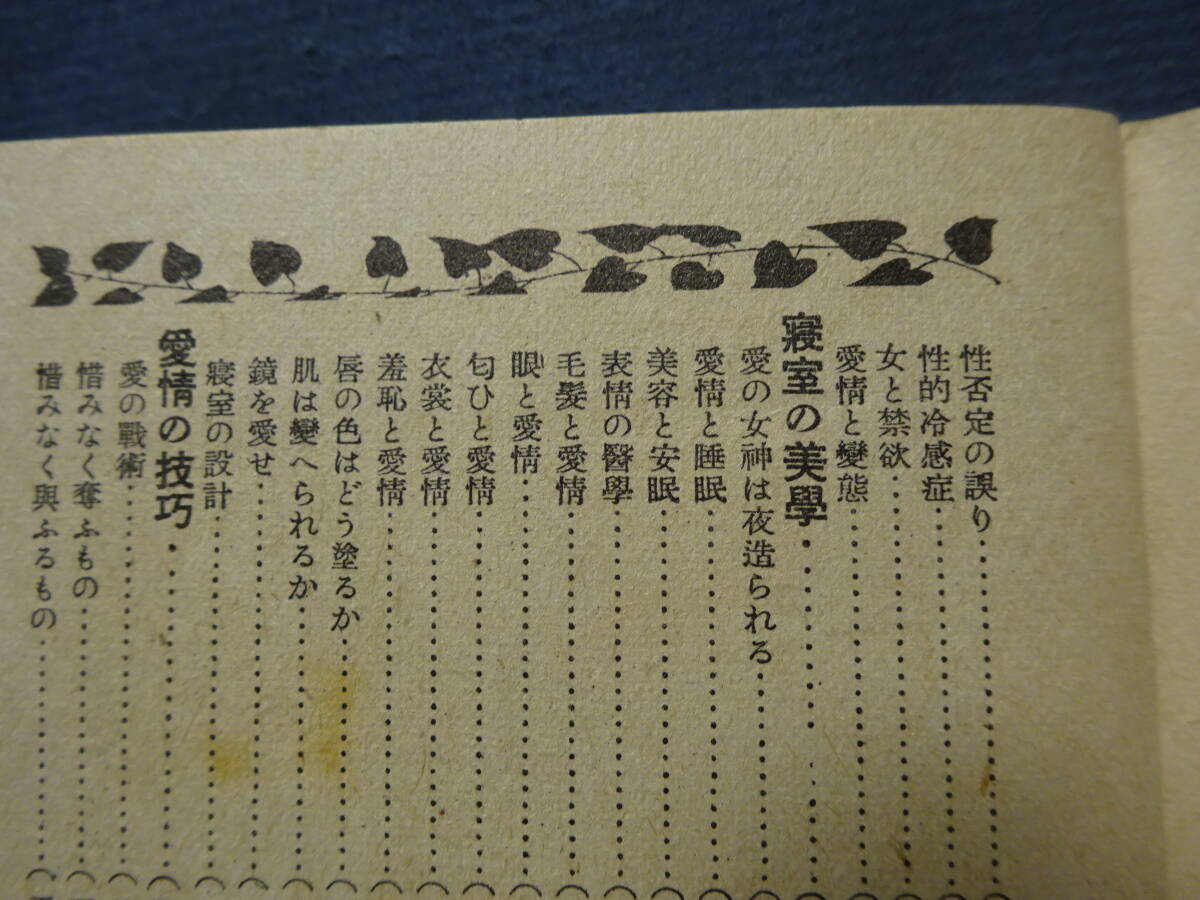 性否定の誤り
性的冷感症
女と禁欲
愛情と變態
寢室の美學
愛の女神は夜造られる
愛情と睡眠
美容と安眠
表情の醫學
毛髮と愛情
眼と愛情
匂ひと愛情
衣裳と愛情
羞恥と愛情
唇の色はどう塗るか
肌は變へられるか
鏡を愛せ
寢室の設計
愛情の技巧
愛の戰術
惜みなく奪ふもの
惜みなく與ふるもの